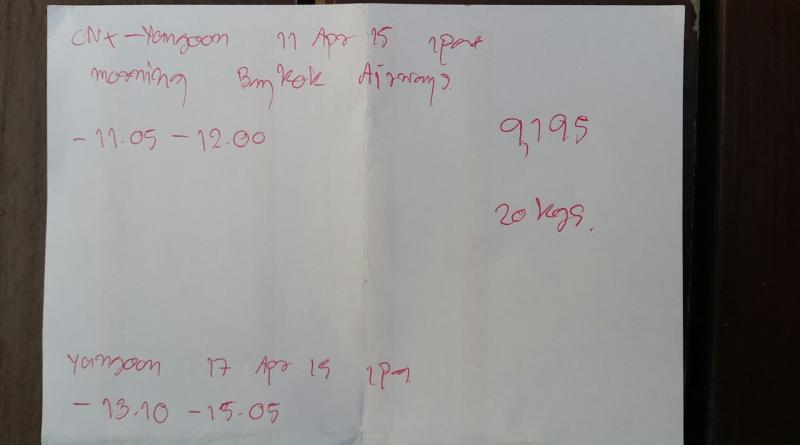 CNX - Yangoon 11 Apr 15 1pax
morning Bangkok Airways.
- 11.05 - 12.00
9,195
20 kgs.
Yangoon 17 Apr 15
- 13.10 - 15.05